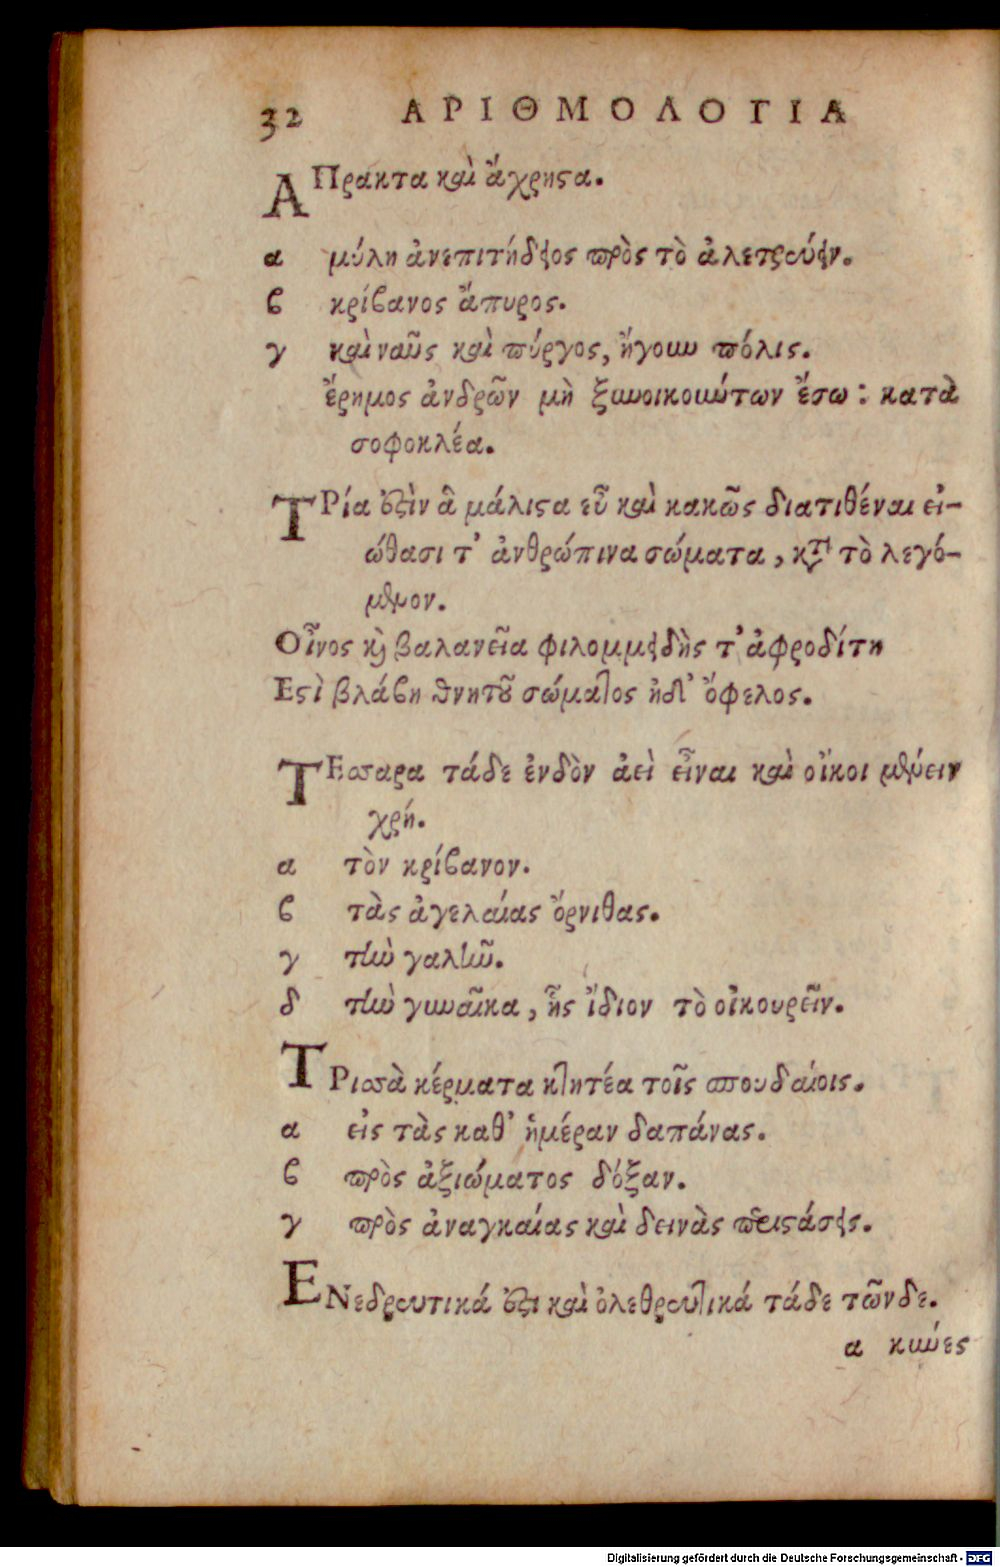 32 ΑΡΙΘΜΟΛΟΓΙΑ
ΑΠρακτα καὶ ἄχρηϛα.
α μύλη ἀνεπιτήδειος πρὸς τὸ ἀλετρεύειν.
ϐ κρίϐανος ἄπυρος.
γ καὶ ναῦς καὶ πύργος, ἤγουν πόλις.
ἔρημος ἀνδρῶν μὴ ξυνοικούντων ἔσω: κατὰ
σοφοκλέα.
ΤΡία ἐϛὶν ἃ μάλιϛα εὖ καὶ κακῶς διατιθέναι εἰ-
ώθασι τ' ἀνθρώπινα σώματα, κατὰ τὸ λεγό-
μενον.
Οἶνος καὶ βαλανεῖα φιλομμειδὴς τ' ἀφροδίτη
Εϛὶ βλάϐη θνητοῦ σώματος ἠδ' ὄφελος.
ΤΕσσαρα τάδε ἐνδὸν ἀεὶ εἶναι καὶ οἴκοι μένειν
χρή.
α τὸν κρίϐανον.
ϐ τὰς ἀγελαίας ὄρνιθας.
γ τὴν γαλῆν.
δ τὴν γυναῖκα, ἧς ἴδιον τὸ οἰκουρεῖν.
ΤΡισσὰ κέρματα κτητέα τοῖς σπουδαίοις.
α εἰς τὰς καθ' ἡμέραν δαπάνας.
ϐ πρὸς ἀξιώματος δόξαν.
γ πρὸς ἀναγκαίας καὶ δεινὰς περιϛάσεις.
ΕΝεδρευτικά ἐϛι καὶ ὀλεθρευτικά τάδε τῶνδε.
α κύνες
Digitalisierung gefördert durch die Deutsche Forschungsgemeinschaft - DFG